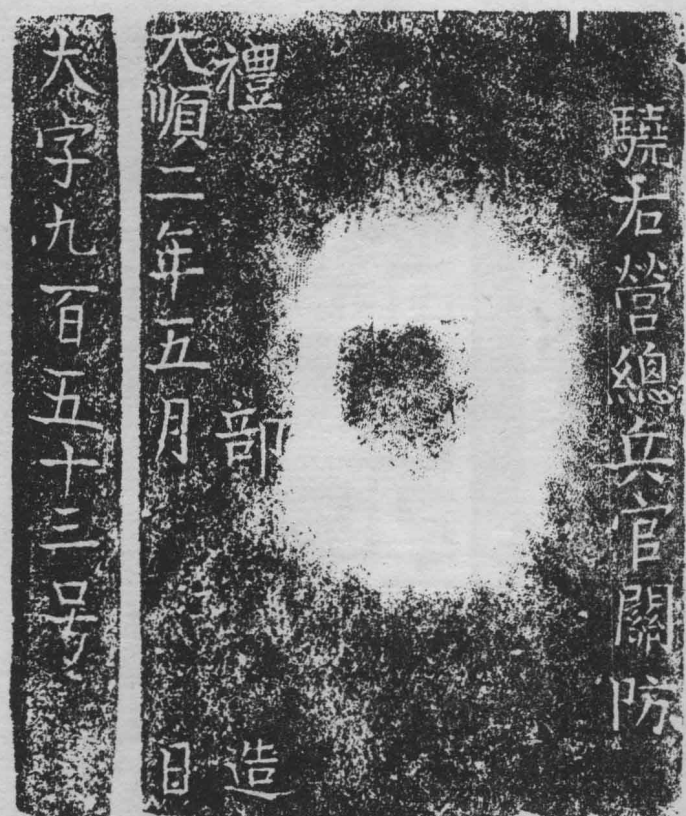 驍右營總兵官關防
禮部造
大順二年五月日
大字九百五十三号